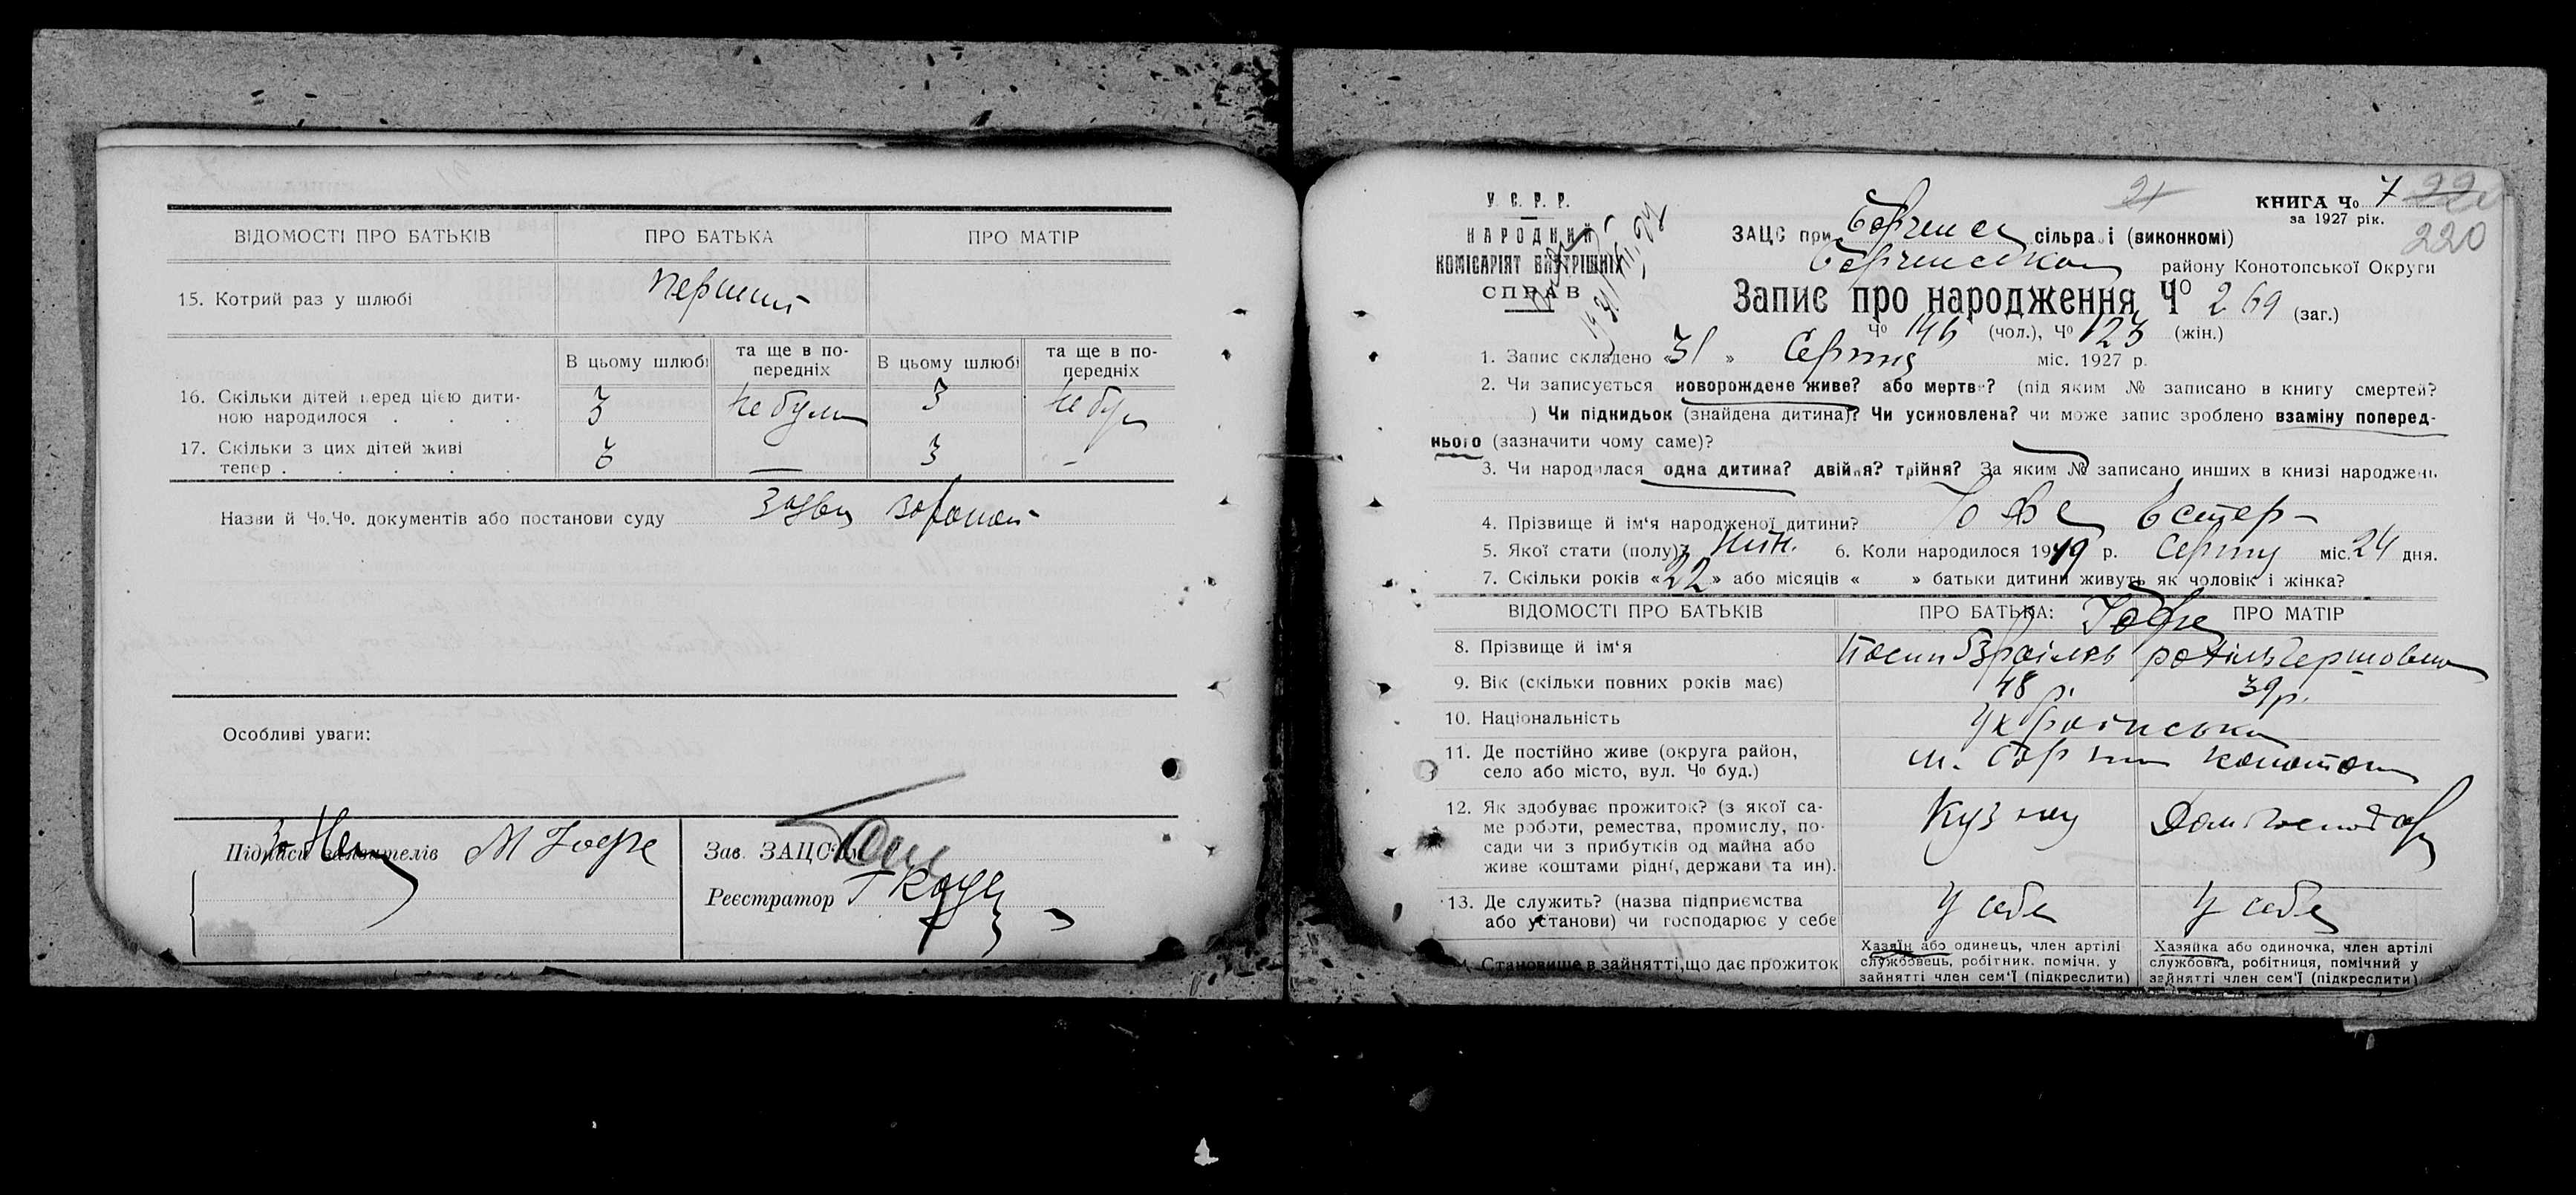 ВІДОМОСТІ ПРО БАТЬКІВ ПРО БАТЬКА ПРО МАТІР
15. Котрий раз у шлюбі перший
В цьому шлюбі та ще в попередніх В цьому шлюбі та ще в попередніх
16. Скільки дітей перед цією дити-
ною народилося . . . 3 не були 3 не бул
17. Скільки з цих дітей живі
тепер . . . . . 3 — 3 -
Назви й Чо.Чо. документів або постанови суду
Особливі уваги:
Підписи заявителів М Иоффе
Зав. ЗАЦС'у
Реєстратор
У. С. Р. Р.
НАРОДНИЙ
КОМІСАРІЯТ ВНУТРІШНІХ
СПРАВ
21
КНИГА Чо 7 220
за 1927 рік.
220
ЗАЦС при сільраді (виконкомі)
району Конотопської Округи
Запис про народження Чо 269 (заг.)
Чо 146 (чол.), Чо 123 (жін.)
1. Запис складено «31» Серпня міс. 1927 р.
2. Чи записується новорождене живе? або мертве? (під яким № записано в книгу смертей?
) Чи підкидьок (знайдена дитина)? Чи усиновлена? чи може запис зроблено взаміну поперед-
нього (зазначити чому саме)?
3. Чи народилася одна дитина? двійня? трійня? За яким № записано инших в книзі народжень
4. Прізвище й ім'я народженої дитини? Естер
5. Якої стати (полу)? жін. 6. Коли народилося 1919 р. серпня міс. 24 дня.
7. Скільки років «22» або місяців « » батьки дитини живуть як чоловік і жінка?
ВІДОМОСТІ ПРО БАТЬКІВ ПРО БАТЬКА: Иоффе ПРО МАТІР
8. Прізвище й ім'я
9. Вік (скільки повних років має) 48 р. 39 р.
10. Національність Українська
11. Де постійно живе (округа район,
село або місто, вул. Чо буд.) м. Борзна Конотоп
12. Як здобуває прожиток? (з якої са-
ме роботи, ремества, промислу, по-
сади чи з прибутків од майна або
живе коштами рідні, держави та ин).
13. Де служить? (назва підприємства
або установи) чи господарює у себе У себе У себе
Становище в зайнятті, що дає прожиток
Хазяїн або одинець, член артілі
службовець, робітник. помічн. у
зайнятті член сем'ї (підкреслити)
Хазяйка або одиночка, член артілі
службовка, робітниця, помічний у
зайнятті член сем'ї (підкреслити)